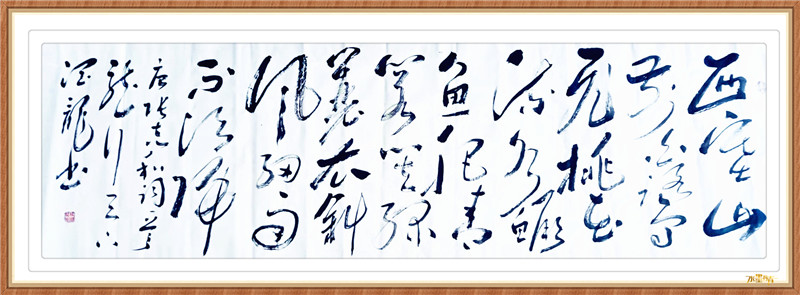 西塞山
前白鹭
飞桃花
流水鳜
鱼肥青
箬笠绿
蓑衣斜
风细雨
不须归
唐张志和词
龙书